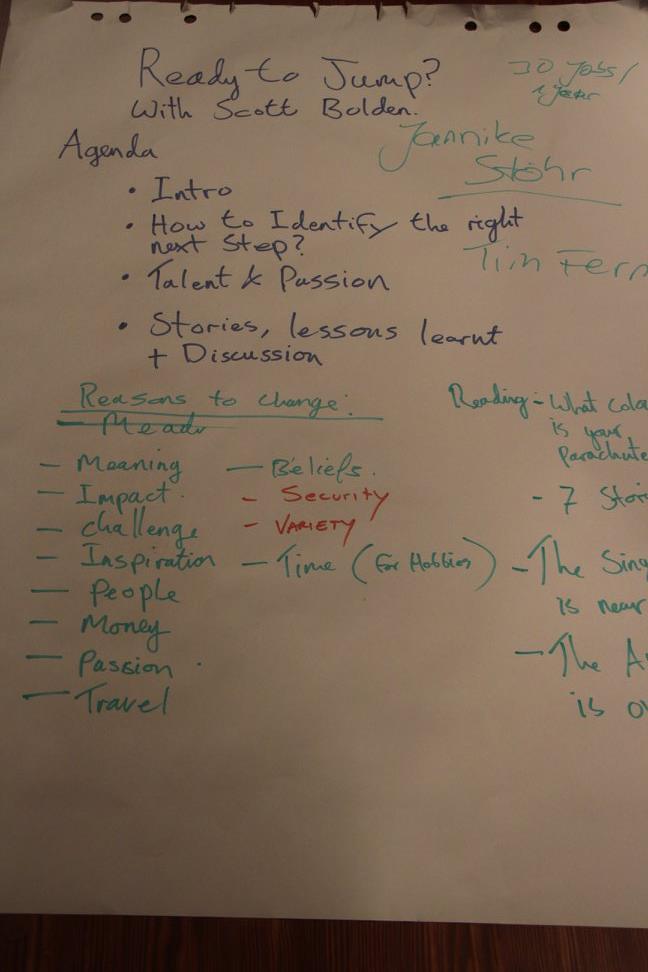 Ready to Jump?
With Scott Bolden.
30 Jobs/
1 year
Jannike
Stöhr
Agenda
• Intro
• How to Identify the right
next Step?
Tim Ferr
• Talent & Passion
• Stories, lessons learnt
+ Discussion
Reasons to change:
- Meaning
- Impact.
- challenge
- Inspiration
- People
- Money
- Passion.
- Travel
- Beliefs.
- Security
- VARIETY
- Time (For Hobbies)
Reading - What Colo
is your
Parachute
- 7 Stor
- The Sing
is near
- The A
is ov